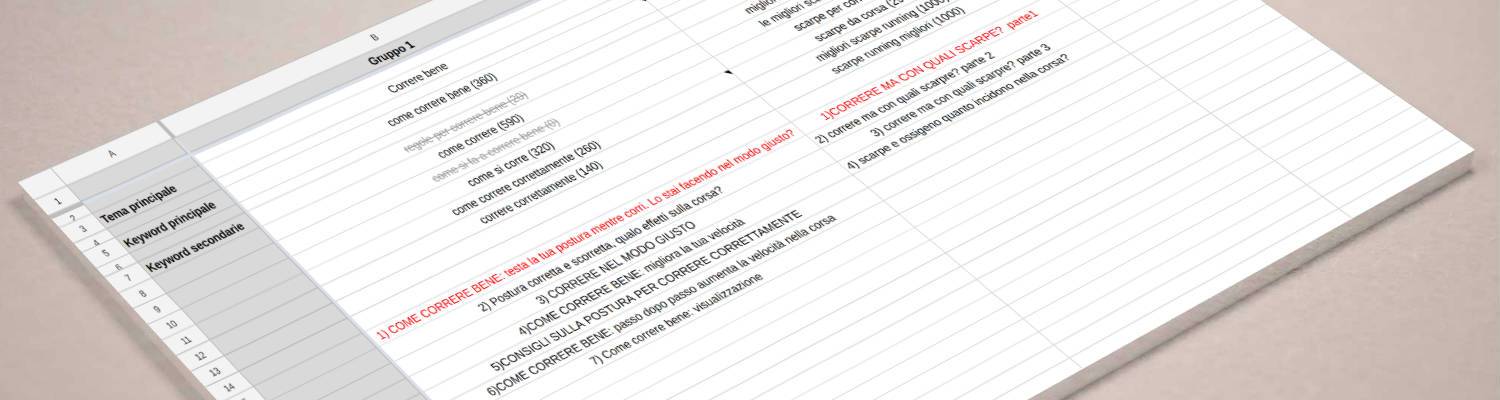 A
B
Gruppo 1
1
2
3
4
5
6
7
8
9
10
11
12
13
14
Tema principale
Keyword principale
Keyword secondarie
Correre bene
come correre bene (360)
regole per correre bene (20)
come correre (590)
come si fa a correre bene (0)
come si corre (320)
come correre correttamente (260)
correre correttamente (140)
1) COME CORRERE BENE: testa la tua postura mentre corri. Lo stai facendo nel modo giusto?
2) Postura corretta e scorretta, quaio effetti sulla corsa?
3) CORRERE NEL MODO GIUSTO
4)COME CORRERE BENE: migliora la tua velocità
5)CONSIGLI SULLA POSTURA PER CORRERE CORRETTAMENTE
6)COME CORRERE BENE: passo dopo passo aumenta la velocità nella corsa
7) Come correre bene: visualizzazione
le migliori
scarpe per
scarpe da corsa
migliori scarpe running (1000)
scarpe running migliori (1000)
1)CORRERE MA CON QUALI SCARPE? parte1
2) correre ma con quali scarpre? parte 2
3) correre ma con quali scarpre? parte 3
4) scarpe e ossigeno quanto incidono nella corsa?